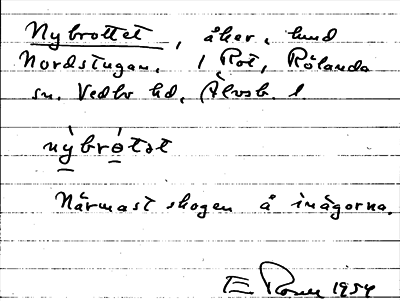 Nybrottet, åker, hmd
Nordstugan, 1 Röt, Rölanda
sn, Vedbo hd, Älvsb. l.
nỳbrótət
Närmast skogen å inägorna.
1954